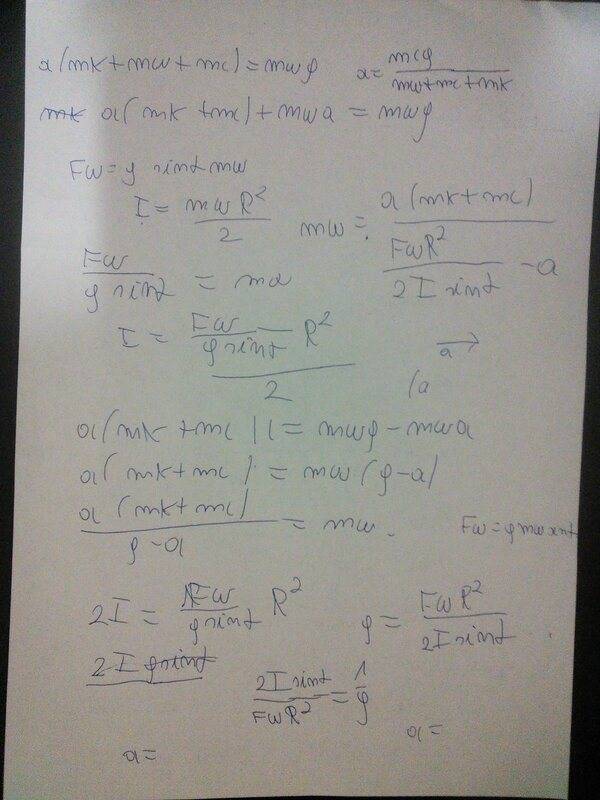 a(mk+mw+mc)=mwg a= mcg/(mw+mc+mk)
mk a(mk+mc)+mwa = mwg
Fw=g sint mw
I= mwR²/2
mw= a(mk+mc)/(FwR²/(2I sint) -a)
Fw/(g sint) = mw
I = (Fw/(g sint) R²)/2
a→
(a
a(mk+mc)(= mwg-mwa
a(mk+mc)= mw(g-a)
a(mk+mc)/(g-a) = mw.
Fw=gmwsint
2I= Fw/(g sint) R²
g= FwR²/(2Isint)
2I gsint
2Isint/(FwR²) = 1/g
a=
a=